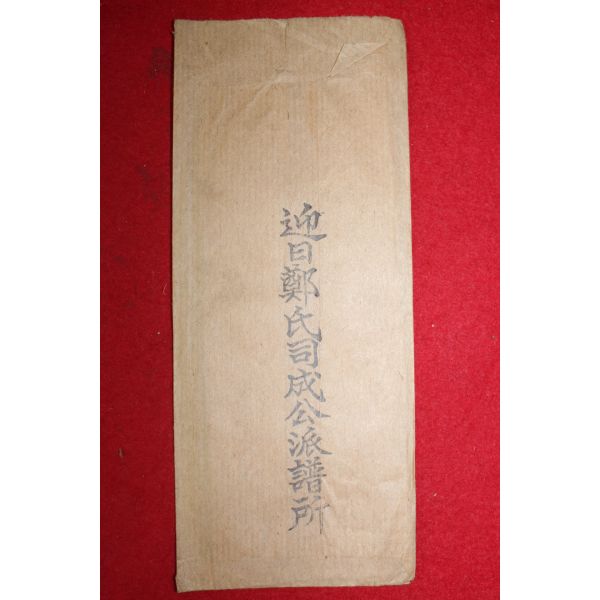 迎日鄭氏司成公派譜所